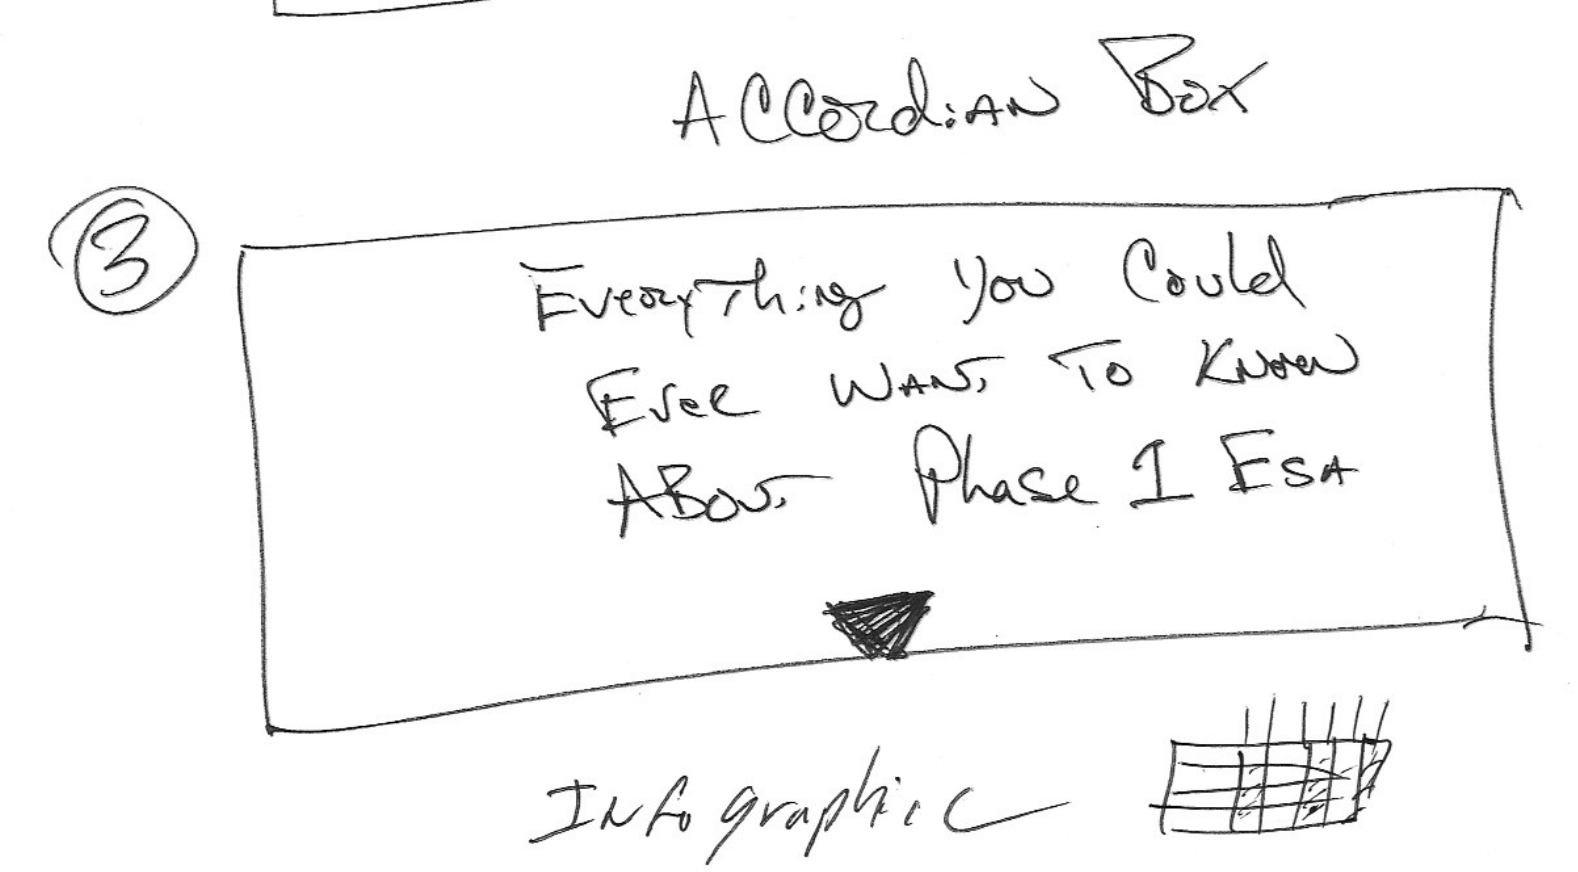 Accordian Box
3
Everything You Could
Ever Want To Know
About Phase I ESA
Infographic